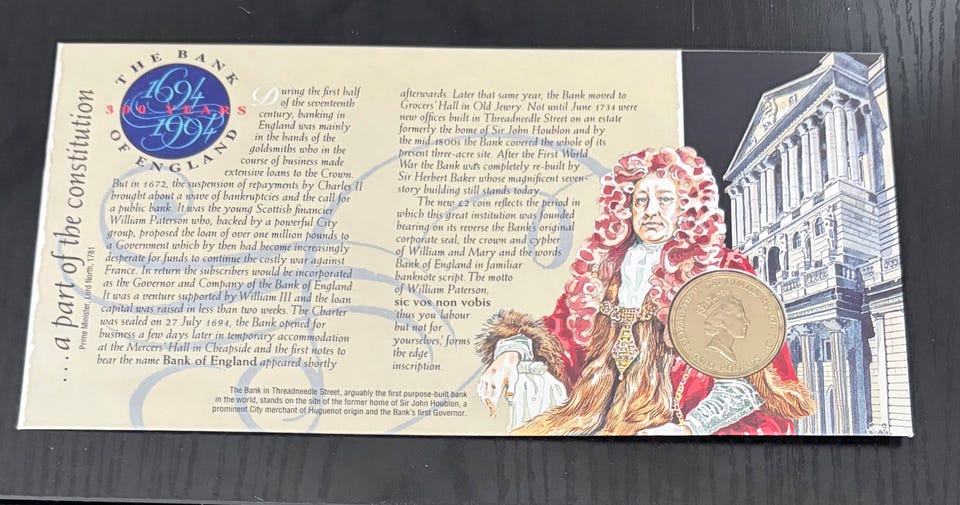 THE BANK
1694
300 YEARS
1994
OF ENGLAND
. . . a part of the constitution
Prime Minister, Lord North, 1781
During the first half
of the seventeenth
century, banking in
England was mainly
in the hands of the
goldsmiths who in the
course of business made
extensive loans to the Crown.
But in 1672, the suspension of repayments by Charles II
brought about a wave of bankruptcies and the call for
a public bank. It was the young Scottish financier
William Paterson who, backed by a powerful City
group, proposed the loan of over one million pounds to
a Government which by then had become increasingly
desperate for funds to continue the costly war against
France. In return the subscribers would be incorporated
as the Governor and Company of the Bank of England.
It was a venture supported by William III and the loan
capital was raised in less than two weeks. The Charter
was sealed on 27 July 1694, the Bank opened for
business a few days later in temporary accommodation
at the Mercers' Hall in Cheapside and the first notes to
bear the name Bank of England appeared shortly
afterwards. Later that same year, the Bank moved to
Grocers' Hall in Old Jewry. Not until June 1734 were
new offices built in Threadneedle Street on an estate
formerly the home of Sir John Houblon and by
the mid 1800s the Bank covered the whole of its
present three-acre site. After the First World
War the Bank was completely re-built by
Sir Herbert Baker whose magnificent seven-
story building still stands today.
The new £2 coin reflects the period in
which this great institution was founded
bearing on its reverse the Bank's original
corporate seal, the crown and cypher
of William and Mary and the words
Bank of England in familiar
banknote script. The motto
of William Paterson,
sic vos non vobis
'thus you labour
but not for
yourselves,' forms
the edge
inscription.
The Bank in Threadneedle Street, arguably the first purpose-built bank
in the world, stands on the site of the former home of Sir John Houblon, a
prominent City merchant of Huguenot origin and the Bank's first Governor.